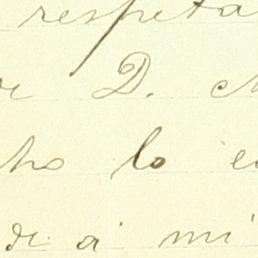 respeta
D.
ho lo
de á mi